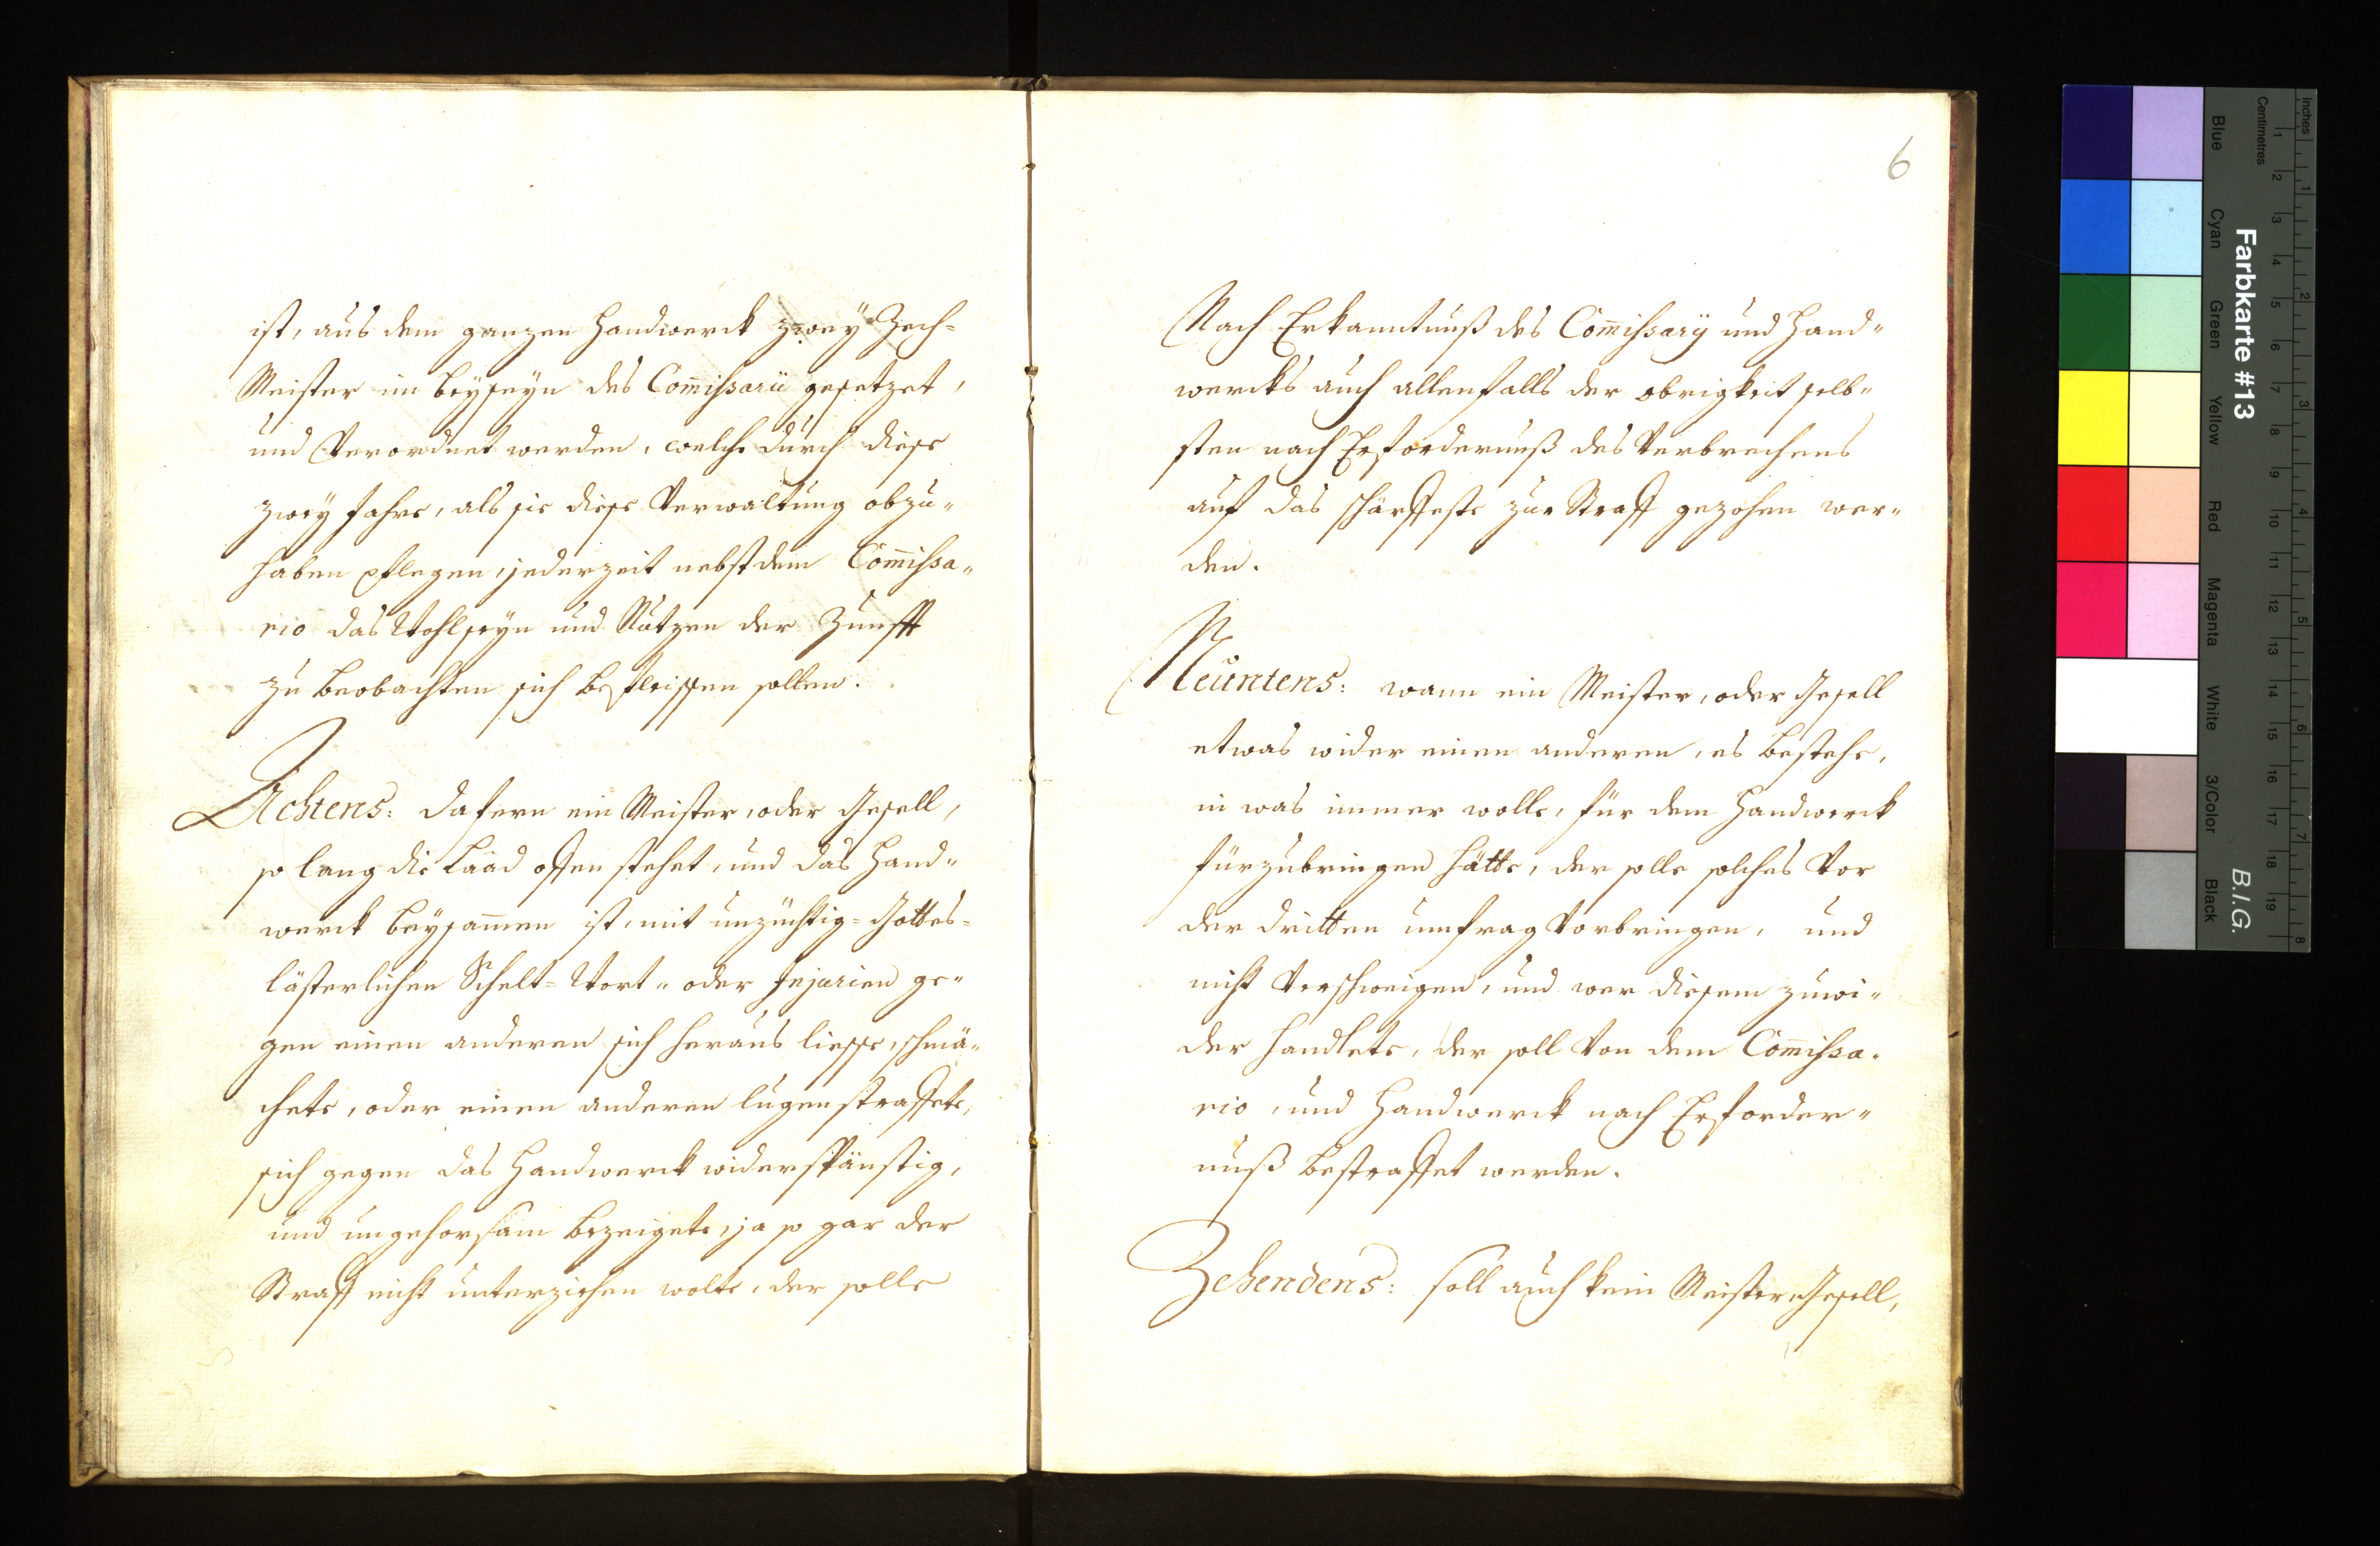 ist, aus dem ganzen Handwerck zwey Zech=
Meister im beyseyn des Com̄issarii gesetzet,
und Verordnet werden, welche durch diese
zwey Jahre, als sie diese Verwaltung obzu„
haben pflegen, jederzeit nebst dem Com̄issa„
rio das Wohlseyn und Nutzen der Zunfft
zu beobachten sich befleissen sollen.
Achtens: dafern ein Meister, oder Gesell,
so lang die Laad offen stehet, und das Hand„
werck beysam̄en ist, mit unzüchtig= Gottes=
lästerlichen Schelt= Wort„ oder Injurien ge„
gen einen anderen sich heraus liesse, schmä„
chete, oder einen anderen lugenstraffete,
sich gegen das Handwerck widerspänstig,
und ungehorsam bezeigete, ja so gar der
Straff nicht unterziehen wolte, der solle
6
Nach Erkanntnuß des Com̄issarÿ und Hand„
wercks auch allenfalls der obrigkeit selb„
sten nach Erfordernuß des Verbrechens
auf das schärffeste zur Straff gezohen wer„
den.
Neüntens: wann ein Meister, oder Gesell
etwas wider einen anderen, es bestehe,
in was immer wolle, für dem Handwerck
fürzubringen hätte, der solle solches Vor
der dritten umfrag Vorbringen, und
nicht Verschweigen, und wer diesem zuwi„
der handlete, der soll Von dem Com̄issa„
rio, und Handwerck nach Erforder„
nuß bestraffet werden.
Zehendens: soll auch kein Meister, Gesell,
Farbkarte #13
B.I.G.
Inches
Centimetres
Blue
Cyan
Green
Yellow
Red
Magenta
White
3/Color
Black